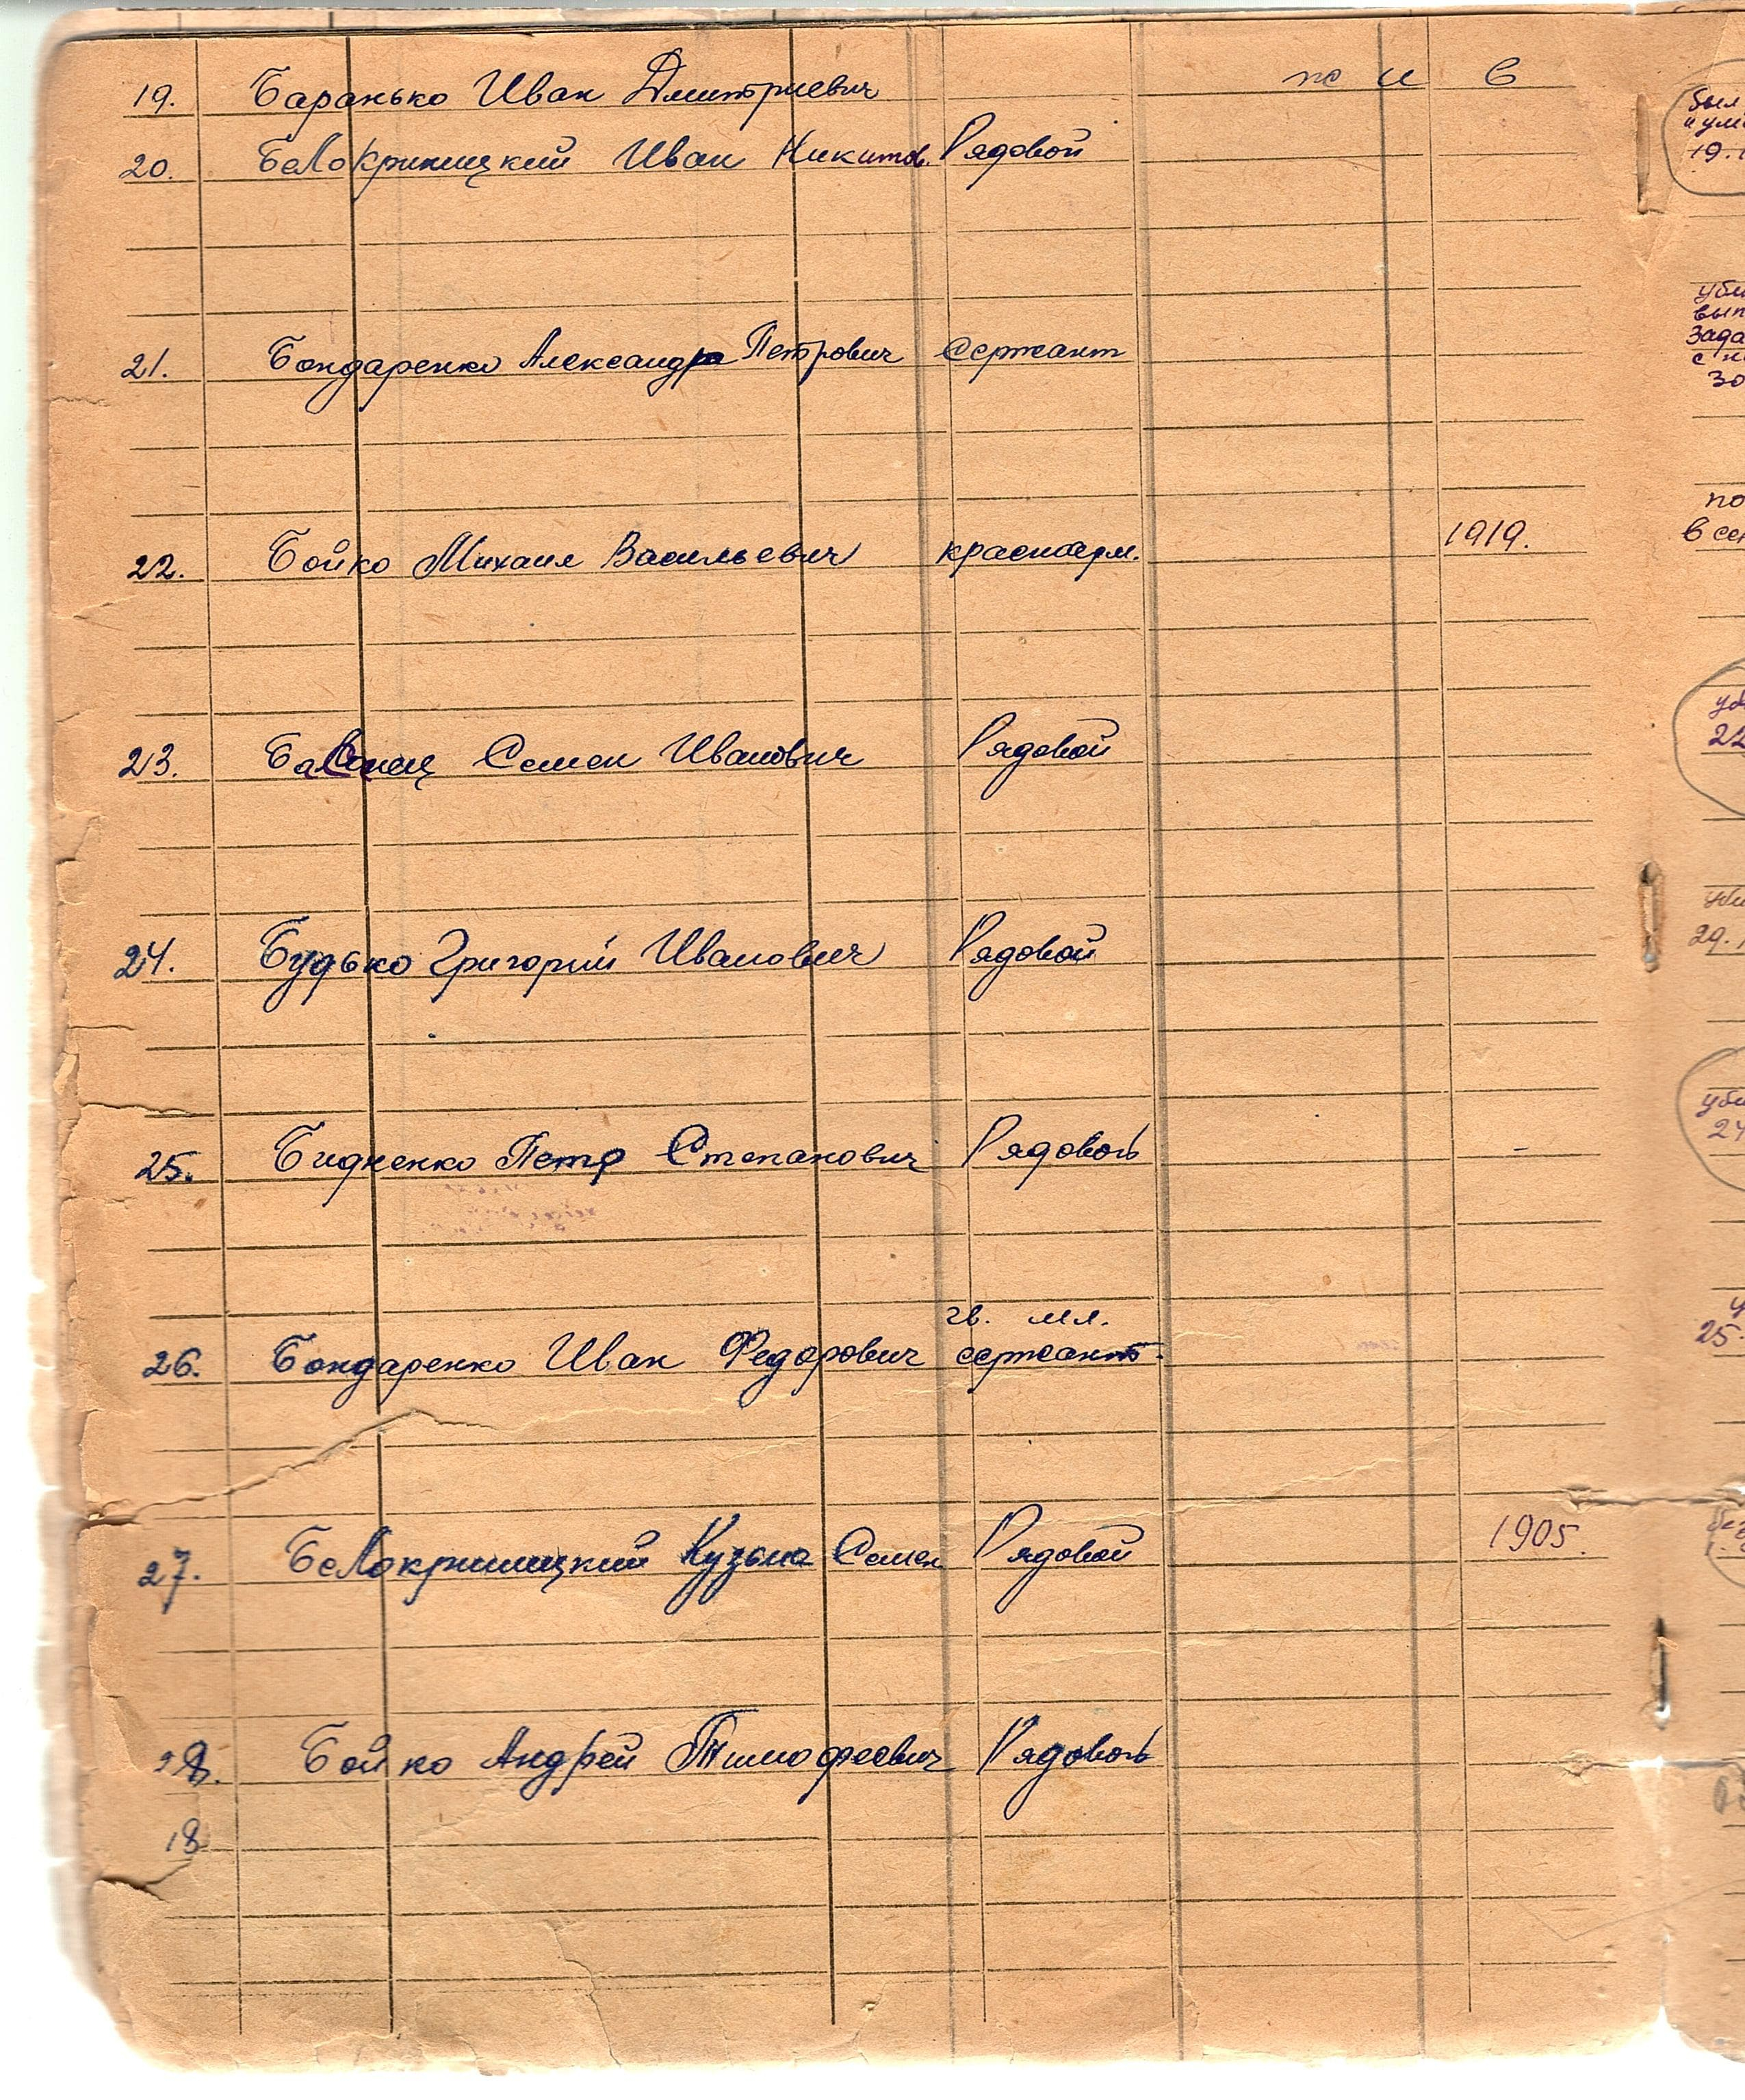 19. Баранько Иван Дмитриевич по и в
20. Белокриницкий Иван Никитов. Рядовой
21. Бондаренко Александр Петрович сержант
22. Бойко Михаил Васильевич красноарм. 1919.
23. Семен Иванович Рядовой
24. Будько Григорий Иванович Рядовой
25. Бидненко Петр Степанович Рядовой -
гв. мл.
26. Бондаренко Иван Федорович сержант.
27. Белокриницкий Кузьма Семен Рядовой 1905.
28. Бойко Андрей Тимофеевич Рядовой
18
19.
22
29.
24
25.